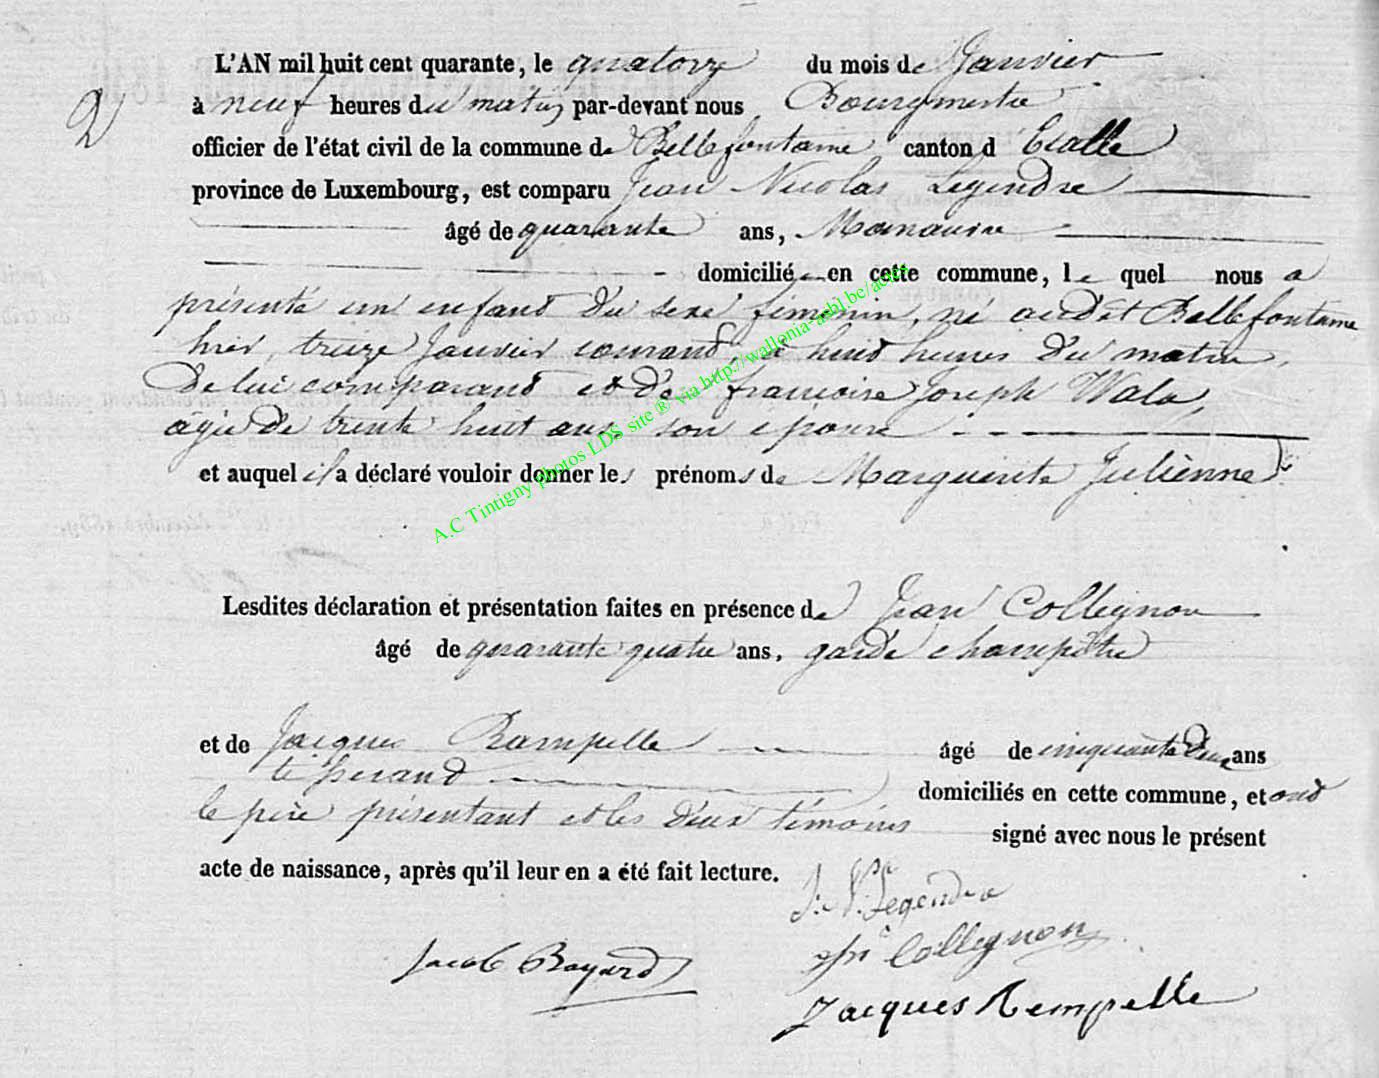 L'AN mil huit cent quarante, le quatorze du mois de Janvier
2
à neuf heures du matin par-devant nous Bourgmestre
officier de l'état civil de la commune de Bellefontaine canton d'Etalle
province de Luxembourg, est comparu Jean Nicolas Legendre
âgé de quarante ans, Manœuvre
domicilié en cette commune, le quel nous a
présenté un enfant du sexe féminin, né audit Bellefontaine
hier, treize Janvier courant, à huit heures du matin,
de lui comparant et de francoise Joseph Wala,
âgée de trente huit ans son épouse
et auquel il a déclaré vouloir donner les prénoms de Marguerite Julienne
A.C Tintigny photos LDS site ® via http://wallonia-asbl.be/actes
Lesdites déclaration et présentation faites en présence de Jean Collignon
âgé de quarante quatre ans, garde champêtre
et de Jacques Rampelle âgé de cinquante deux ans
tisserand domiciliés en cette commune, et ont
le père présentant et les deux témoins signé avec nous le présent
acte de naissance, après qu'il leur en a été fait lecture.
J. N. Legendre
Jacob Bayard Collignon
Jacques Rempelle